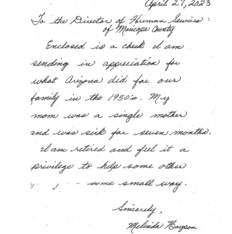 April 27, 2023
To the Director of Human Services:
of Maricopa County
Enclosed is a check I am
sending in appreciation for
what Arizona did for our
family in the 1950's. My
mom was a single mother
and was sick for seven months.
I am retired and feel it a
privilege to help some other
some small way.
Sincerely,
Melinda